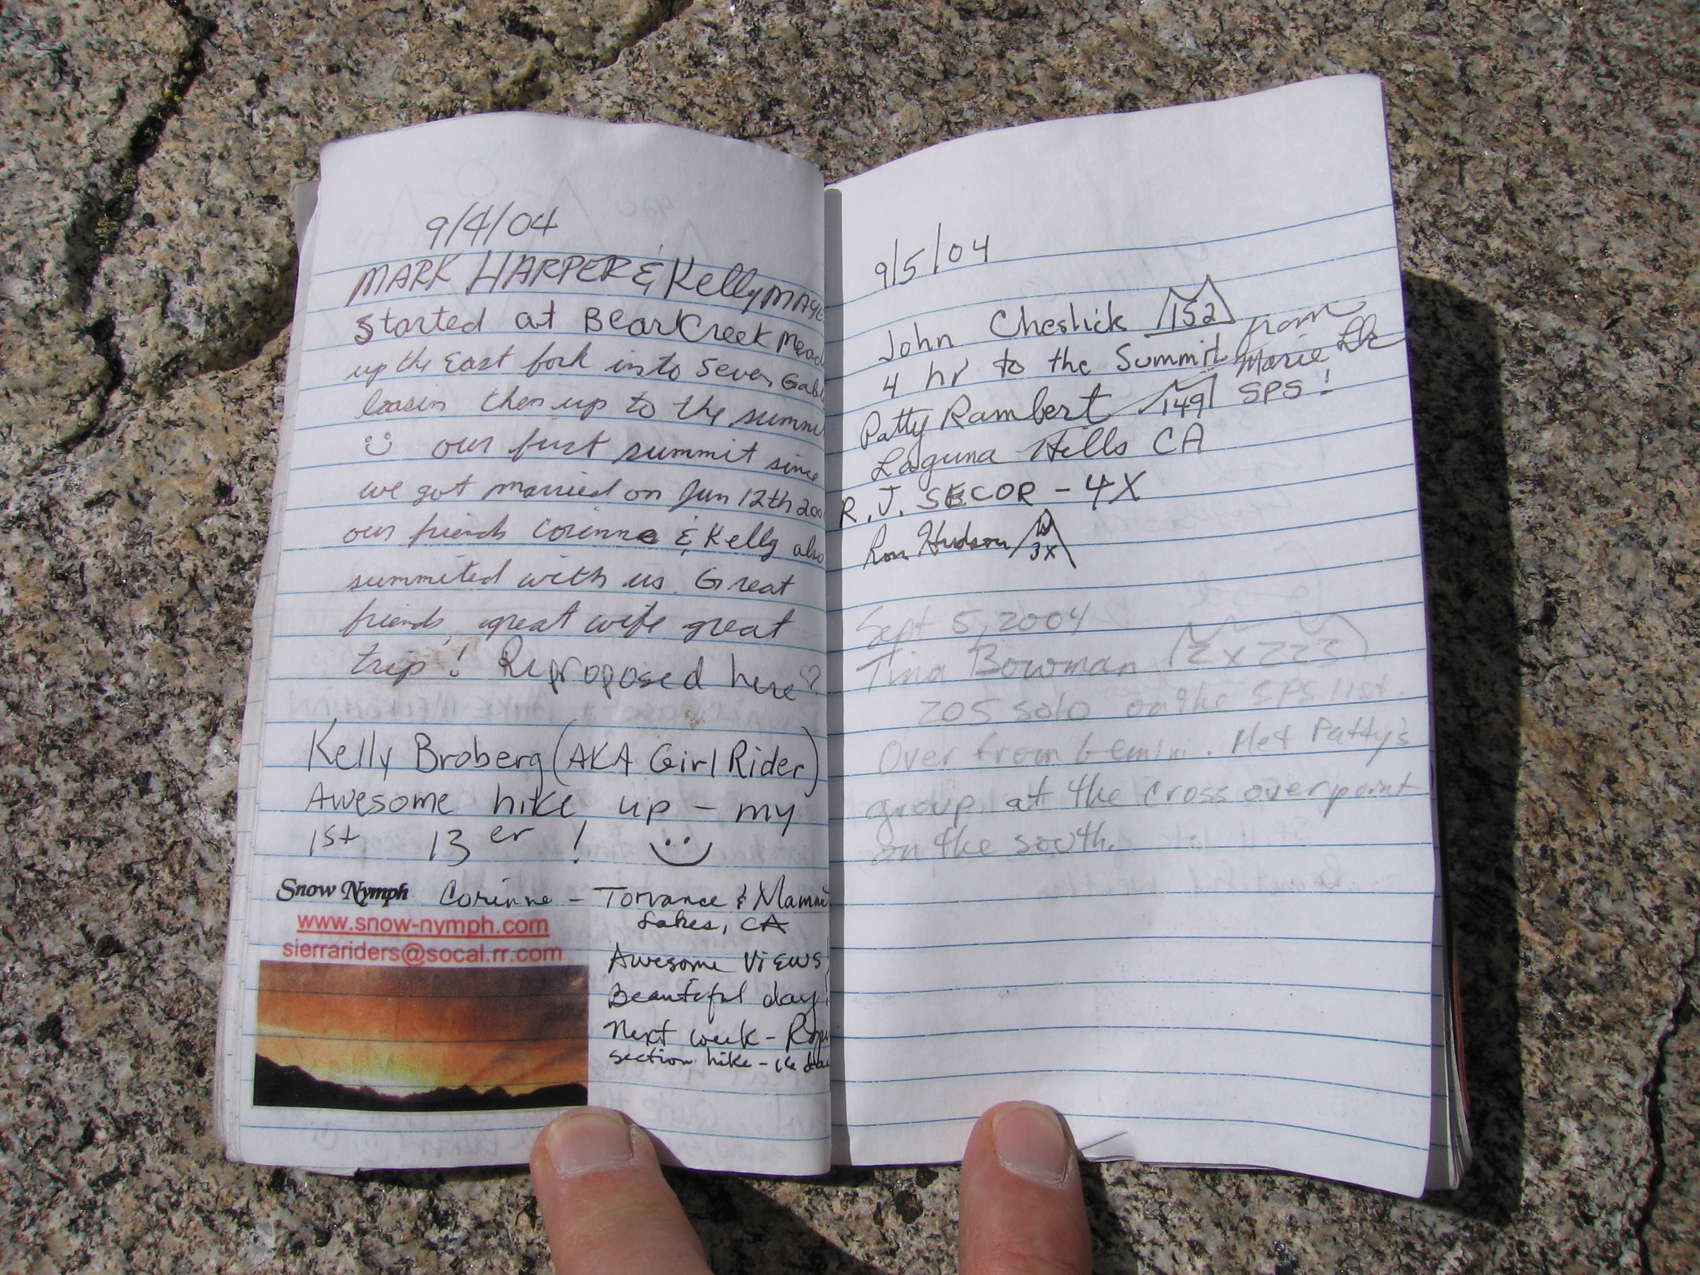 9/4/04
MARK HARPER & Kelly
Started at Bear Creek
up the East fork into Seven
basin then up to the
our first summit since
we got married on Jun 12th
our friends Corinne & Kelly also
summited with us. Great
friends, great wife great
trip! Reproposed here ♡
Kelly Broberg (AKA Girl Rider)
Awesome hike up - my
1st 13er!
Snow Nymph Corinne - Torrance &
Lakes, CA
www.snow-nymph.com
sierrariders@socal.rr.com
Awesome Views
Beautiful day!
Next week -
section hike -
9/5/04
John Cheslick 152
4 hr to the Summit from
Marie Lk
Patty Rambert 149 SPS!
Laguna Hills CA
R.J. SECOR - 4X
Ron Hudson 3x
Sept 5, 2004
Tina Bowman 2x 223
205 solo on the SPS list.
Over from Gemini. Met Patty's
group at the crossover point
on the south.